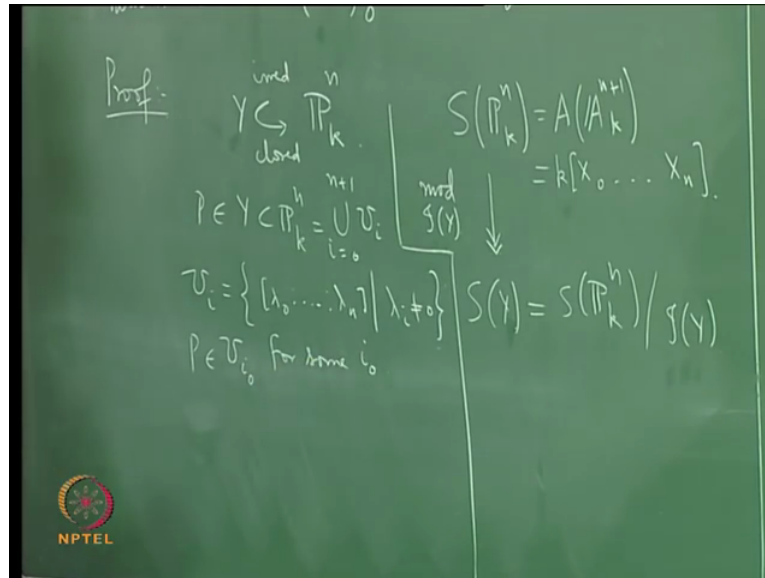 Proof:-
irred
Y ↪ ℙⁿₖ.
closed
P ∈ Y ⊂ ℙⁿₖ = ⋃ᵢ₌₀ⁿ⁺¹ 𝒰ᵢ
𝒰ᵢ = { [λ₀ ..... λₙ] | λᵢ ≠ 0 }
P ∈ 𝒰ᵢ₀ for some i₀
S(ℙⁿₖ) = A(𝔸ⁿ⁺¹ₖ)
= k[X₀ .... Xₙ].
mod
𝒥(Y)
S(Y) = S(ℙⁿₖ) / 𝒥(Y)
NPTEL